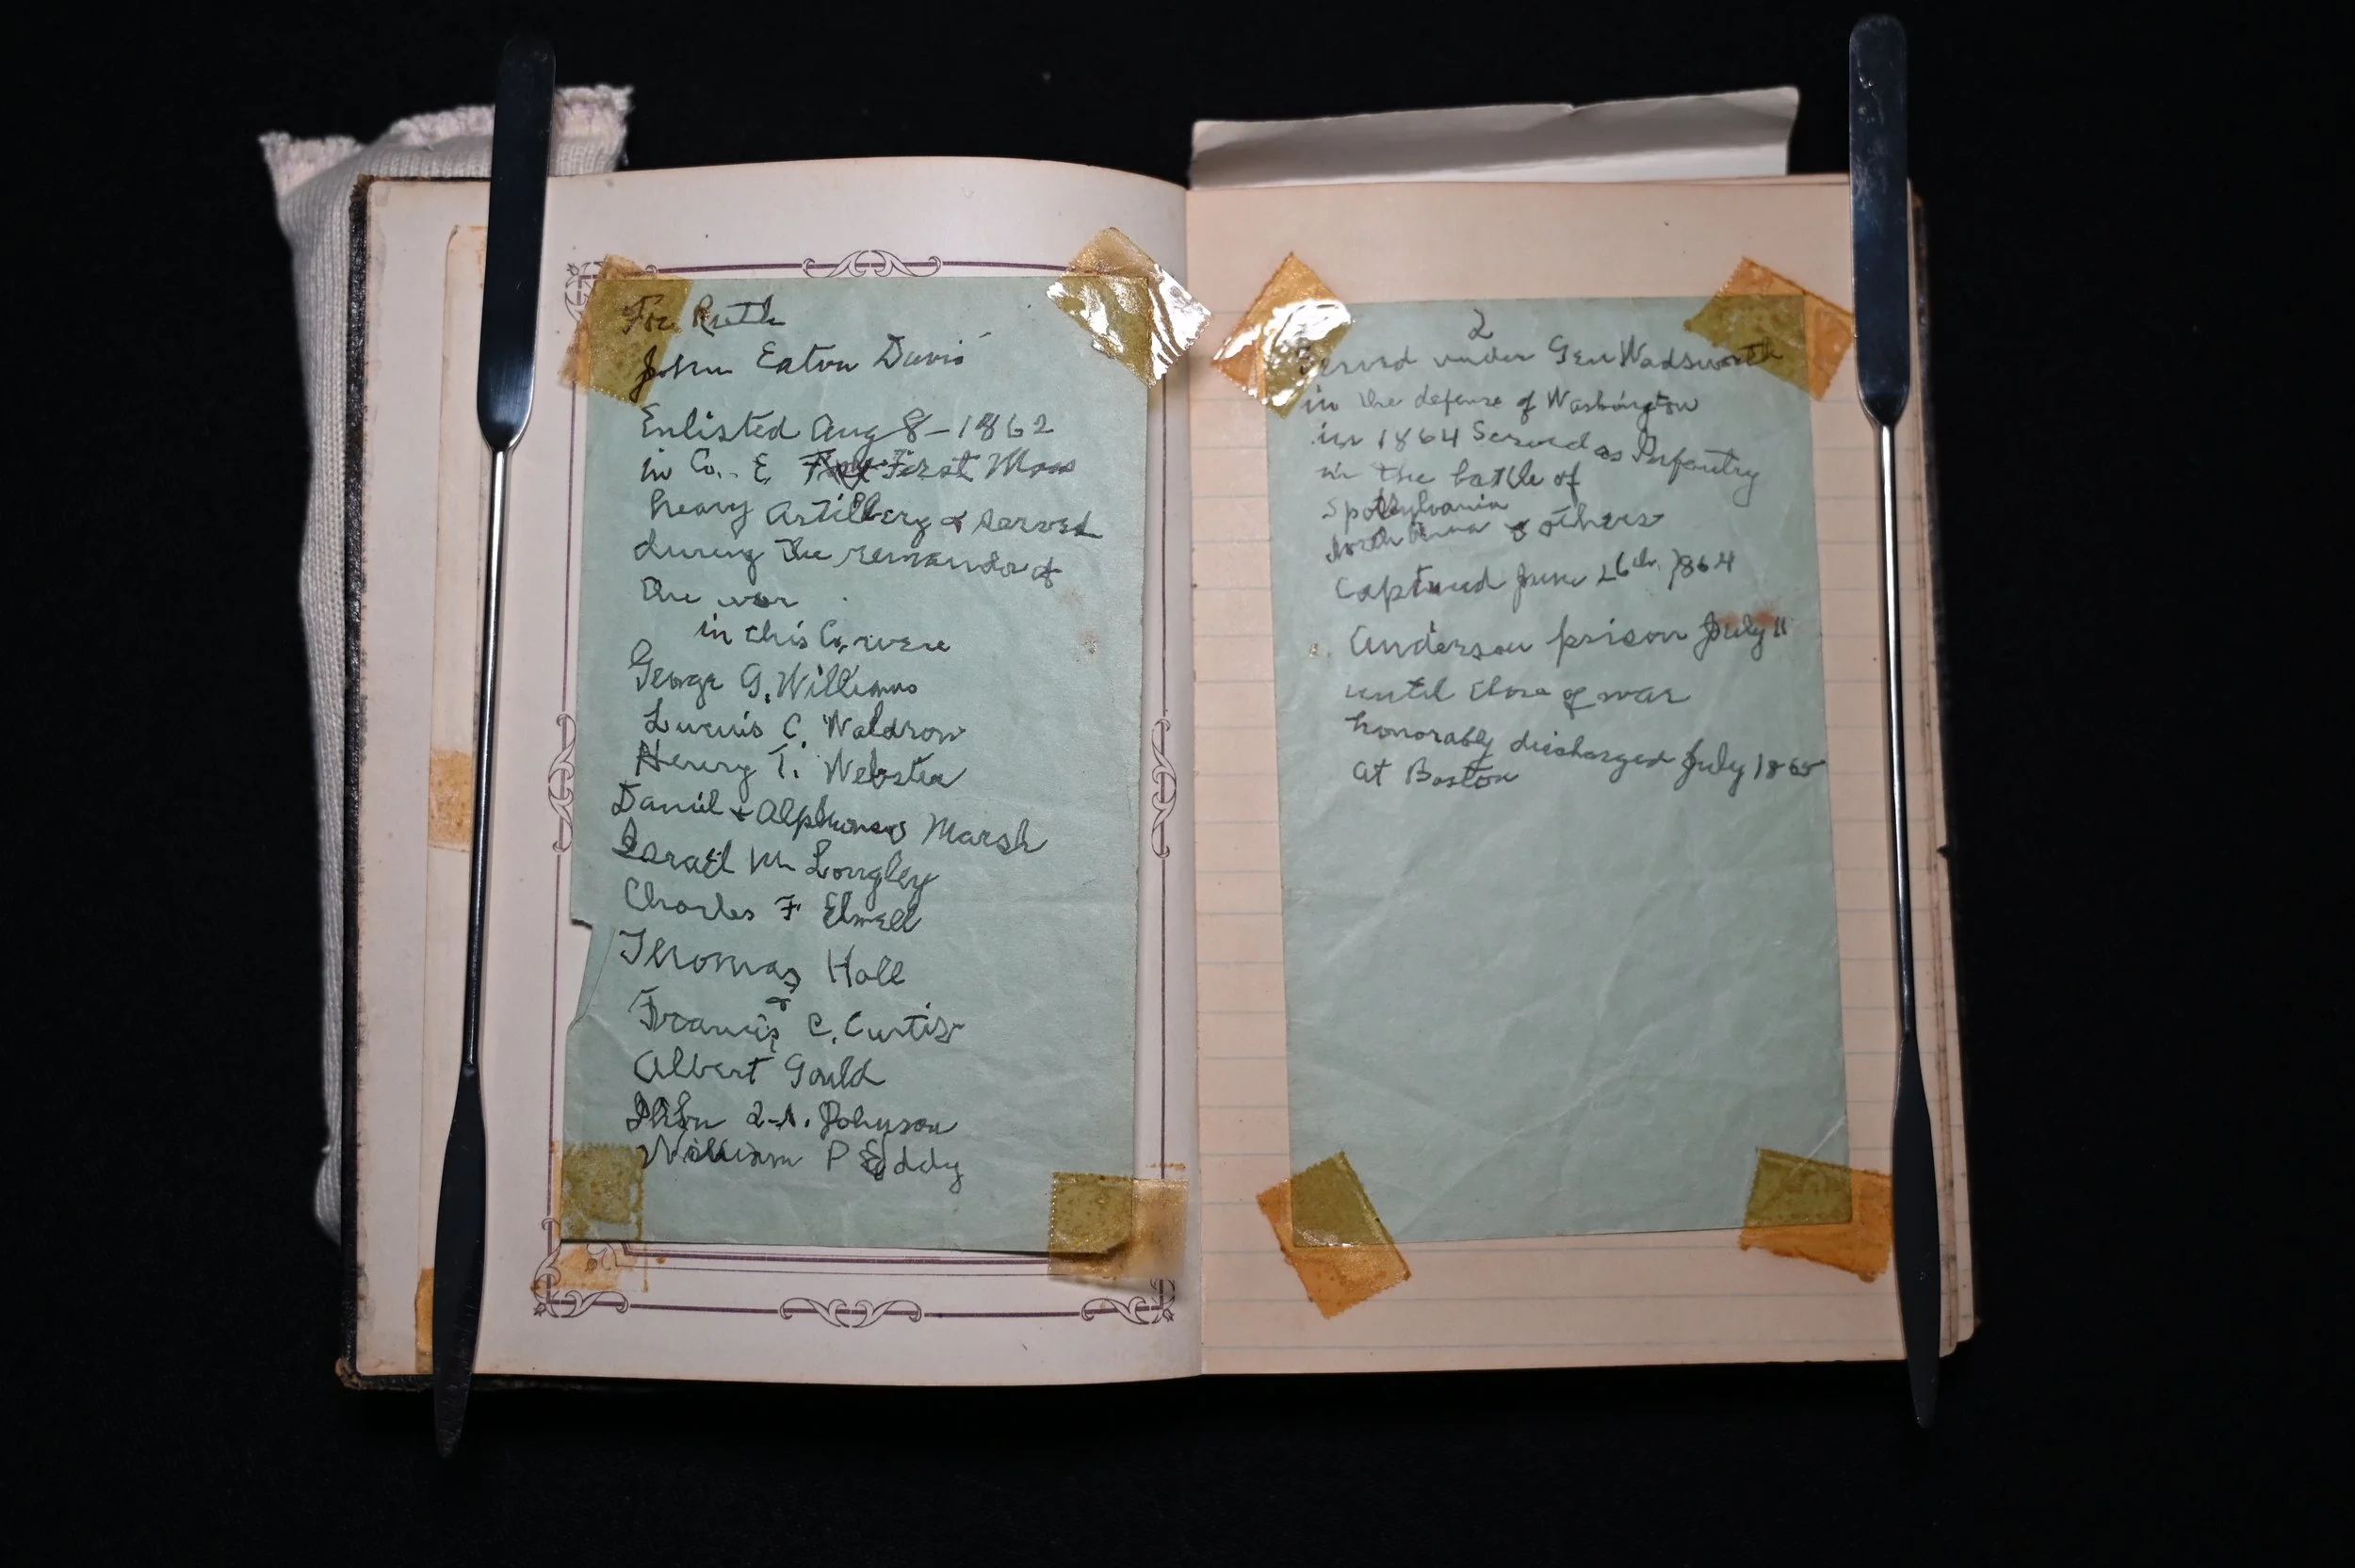 For Ruth
John Eaton Davis
Enlisted Aug 8-1862
in Co. E. First Mass
heavy Artillery & served
during the remainder of
the war
in this Co, were
George G. Williams
Lucuis C. Waldron
Henry T. Webster
Daniel + Alphonso Marsh
Israel M Longley
Charles F Elwell
Thomas Hall
&
Francis C. Curtis
Albert Gould
John Johnson
William P Eddy
2
Served under Gen Wadsworth
in the defense of Washington
in 1864 Served as Infantry
in the battle of
Spottsylvania
North Anna & others
Captured June 26th, 1864
Anderson prison July 11
until close of war
honorably discharged July 1865
at Boston